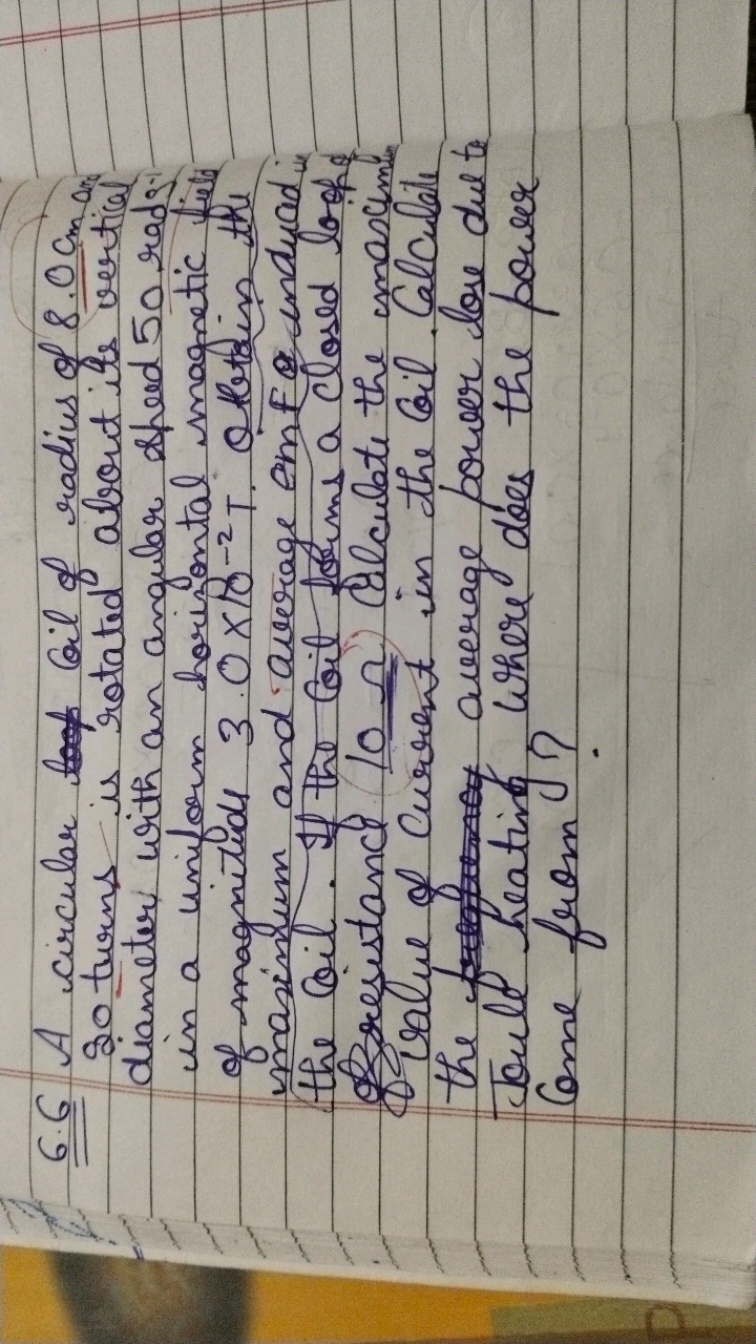 6.6 A circular coil of radius of 8.0 cm and
20 turns is rotated about its vertical
diameter with an angular speed 50 rad s-1
in a uniform horizontal magnetic field
of magnitude 3.0 X 10-2 T. Obtain the
maximum and average emf induced in
the coil. If the coil forms a closed loop of
of resistance 10 Ω Calculate the maximum
value of current in the coil. Calculate
the average power loss due to
Joule heating where does the power
Come from?